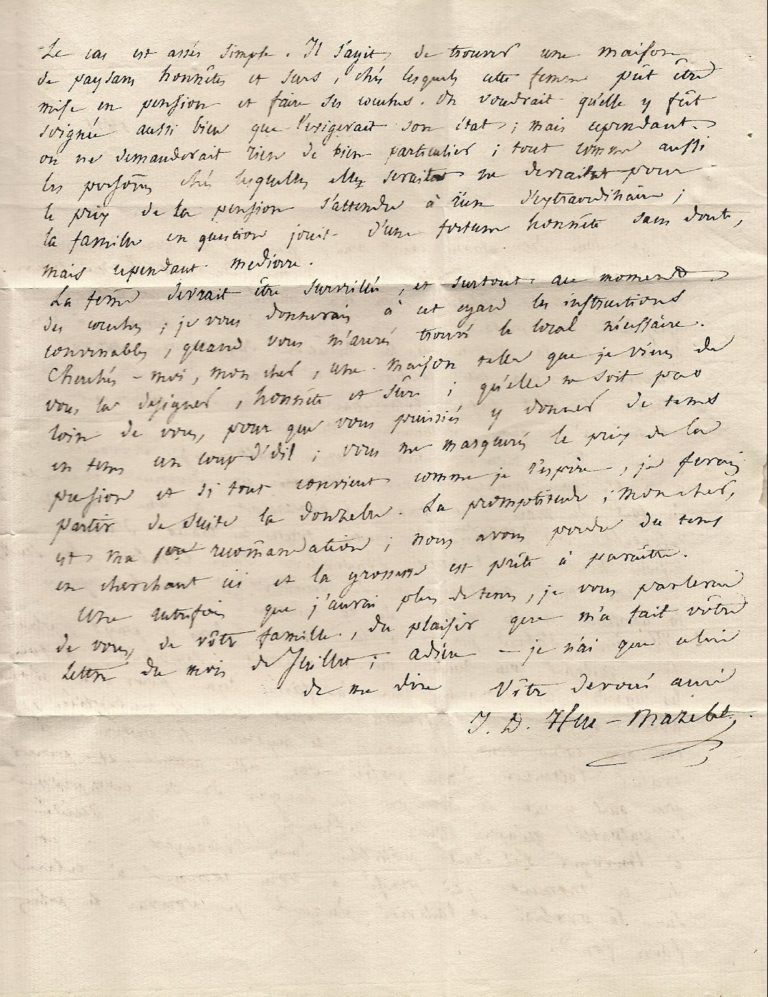 Le cas est assés simple. Il s'agit de trouver une maison
de paysans honnêtes et surs, chés lesquels cette femme pût être
mise en pension et faire ses couches. On voudrait qu'elle y fût
soignée aussi bien que l'exigerait son état; mais cependant
on ne demanderait rien de bien particulier; tout comme aussi
les persoñes chés lesquelles elle serait ne devraient pour
le prix de la pension s'attendre à rien d'extraordinaire;
la famille en question jouit d'une fortune honnête sans doute,
mais cependant mediocre.
La feme devrait être surveillée, et surtout au moment
des couches; je vous donnerais à cet egard les instructions
convenables, quand vous m'aurés trouvé le local nécessaire.
Cherchés-moi, mon cher, une maison telle que je viens de
vous la designer, honnête et sûre; qu'elle ne soit pas
loin de vous, pour que vous puissiés y donner de tems
en tems un coup d'œil; vous me marquerés le prix de la
pension et si tout convient comme je l'espère, je ferai
partir de suite la donzelle. La promptitude, mon cher,
est ma 1ere recomandation; nous avons perdu du tems
en cherchant ici et la grossesse est prête à paraître.
Une autrefois que j'aurai plus de tems, je vous parlerai
de vous, de vôtre famille, du plaisir que m'a fait vôtre
lettre du mois de Juillet; adieu - je n'ai que celui
de me dire Vôtre devoué ami
J. D. - Mazelet.